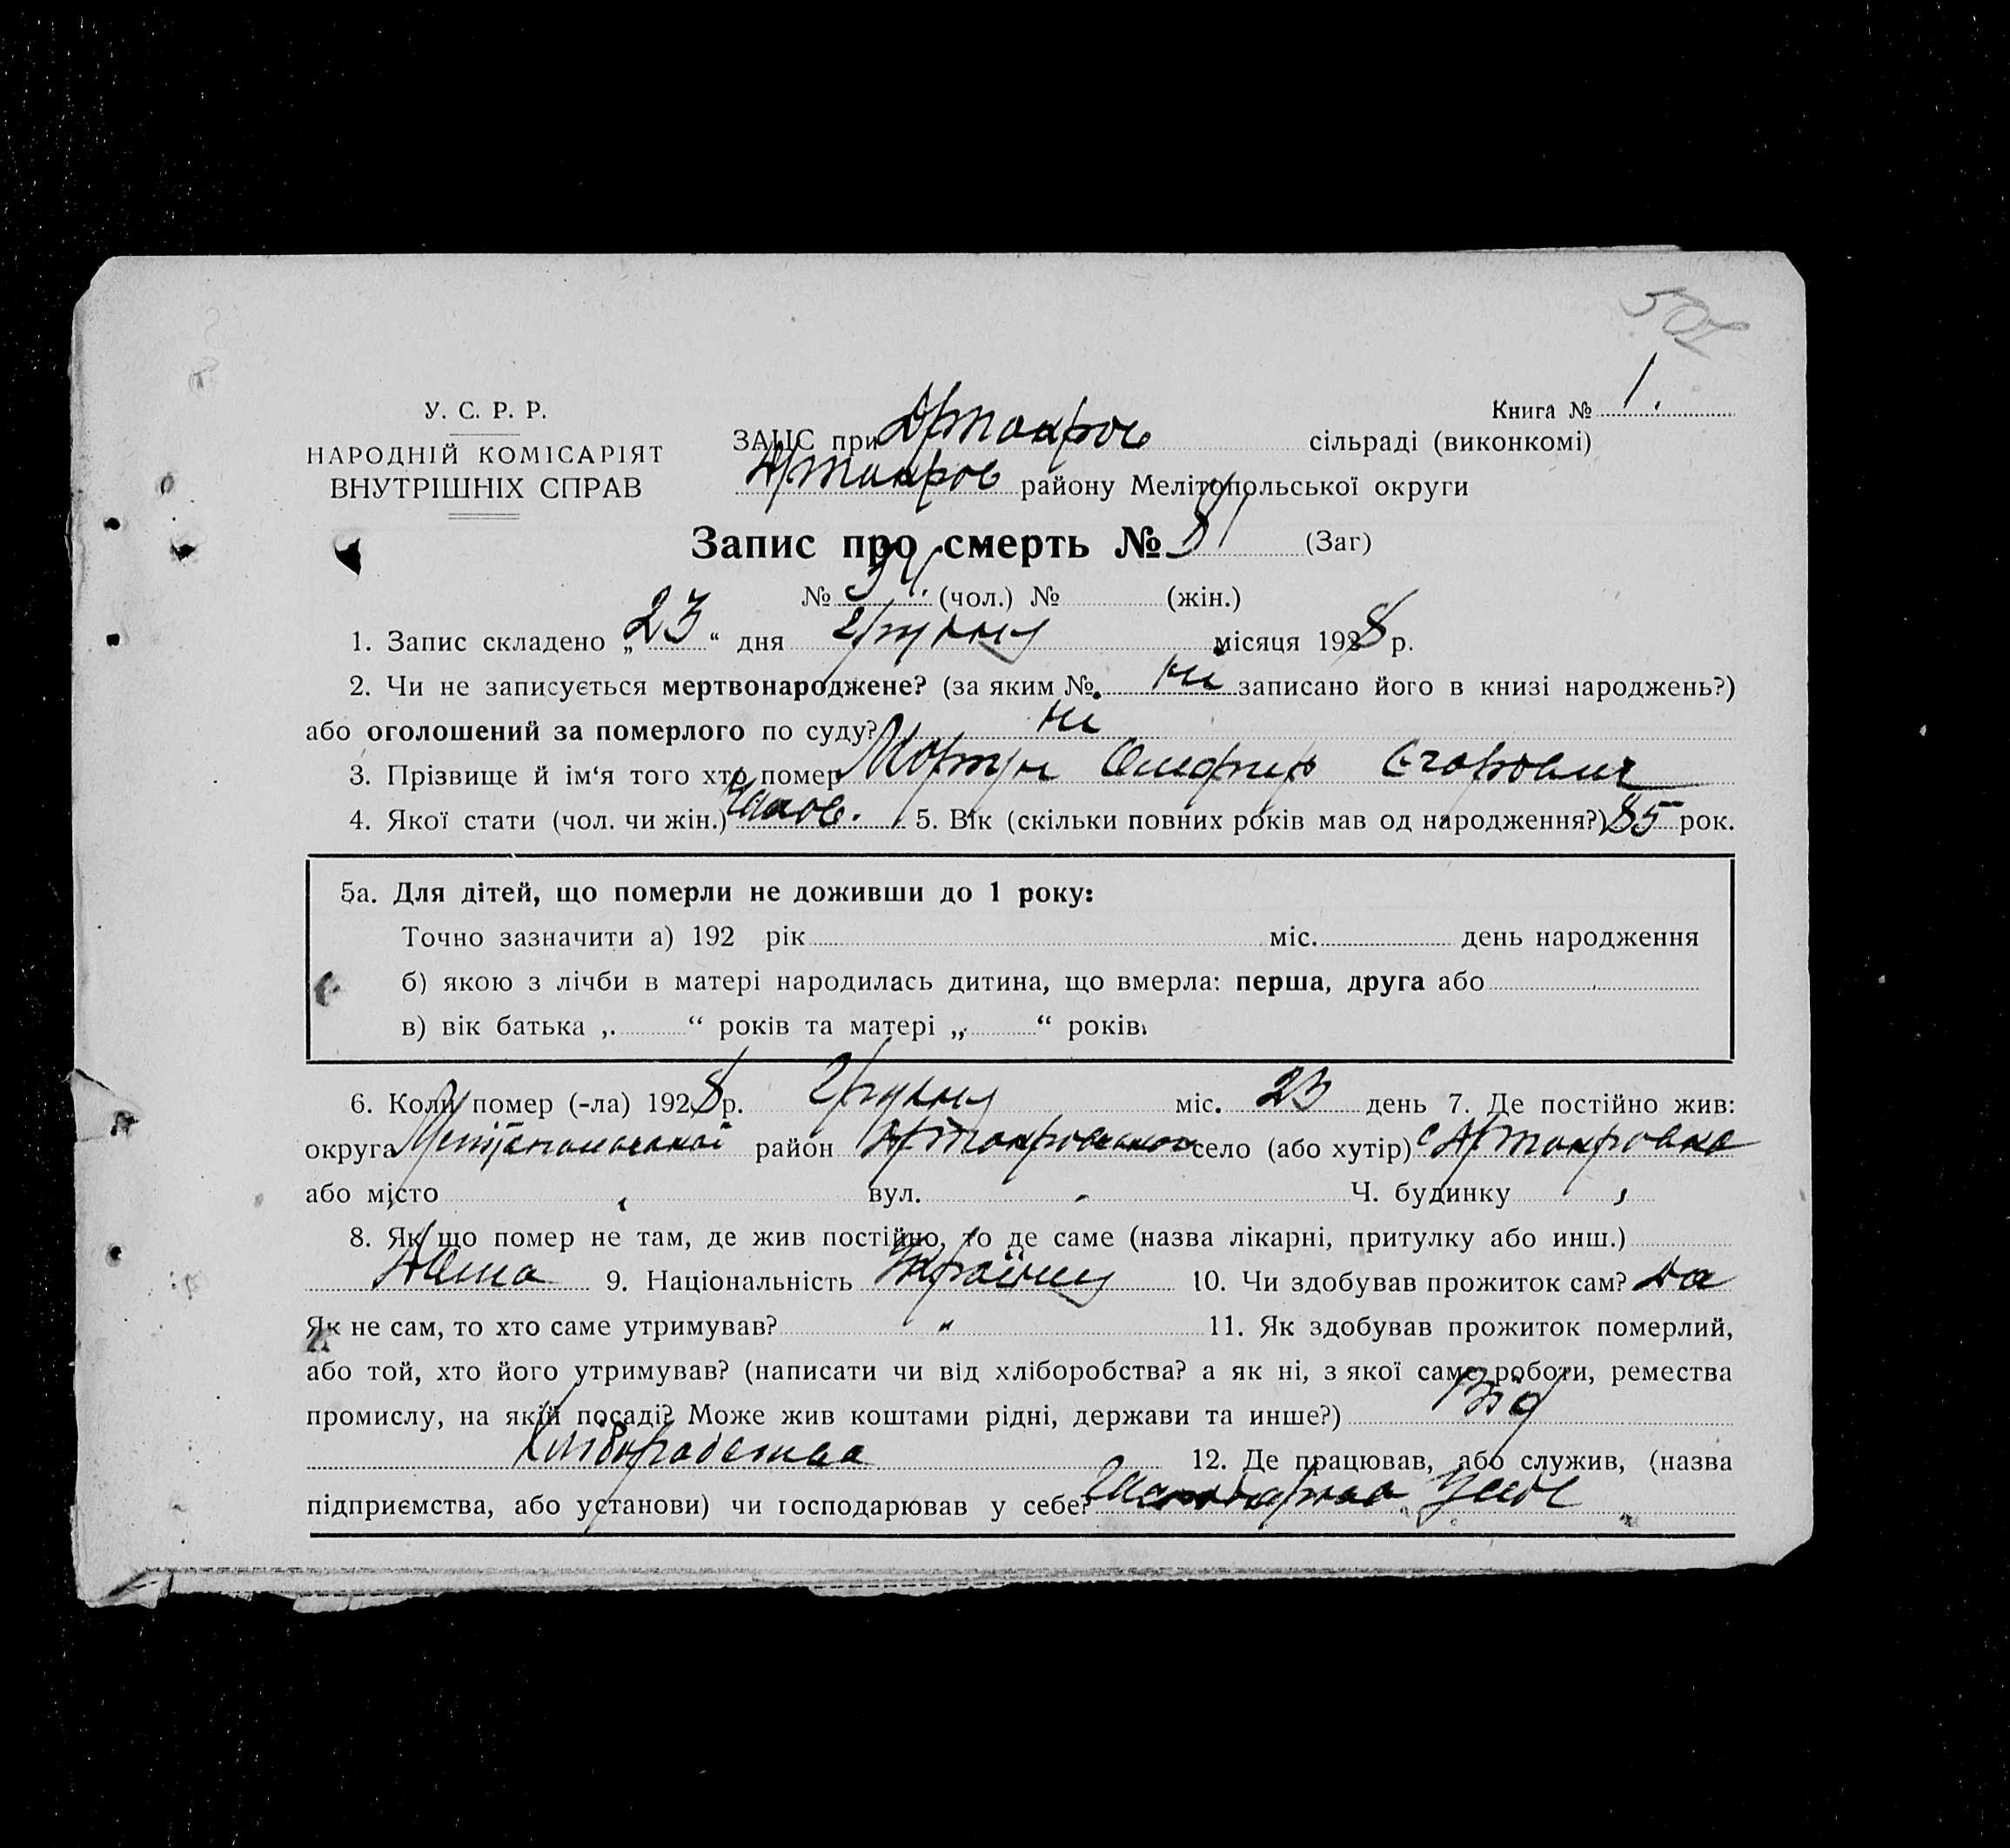 У. С. Р. Р.
НАРОДНІЙ КОМІСАРІЯТ
ВНУТРІШНІХ СПРАВ
Книга № 1.
ЗАГС при сільраді (виконкомі)
району Мелітопольської округи
Запис про смерть № 81 (Заг)
№ (чол.) № (жін.)
1. Запис складено „23“ дня грудня місяця 1928 р.
2. Чи не записується мертвонароджене? (за яким № ні записано його в книзі народжень?)
або оголошений за померлого по суду? ні
3. Прізвище й ім‘я того хто помер Егорович
4. Якої стати (чол. чи жін.) Чолов. 5. Вік (скільки повних років мав од народження?) 85 рок.
5а. Для дітей, що померли не доживши до 1 року:
Точно зазначити а) 192 рік міс. день народження
б) якою з лічби в матері народилась дитина, що вмерла: перша, друга або
в) вік батька „ “ років та матері „ “ років.
6. Коли помер (-ла) 1928 р. грудня міс. 23 день 7. Де постійно жив:
округа Мелітопольської район село (або хутір)
або місто вул. - Ч. будинку
8. Як що помер не там, де жив постійно, то де саме (назва лікарні, притулку або инш.)
Дома 9. Національність 10. Чи здобував прожиток сам? Да
Як не сам, то хто саме утримував? " 11. Як здобував прожиток померлий,
або той, хто його утримував? (написати чи від хліборобства? а як ні, з якої саме роботи, ремества
промислу, на якій посаді? Може жив коштами рідні, держави та инше?) Від
хліборобства 12. Де працював, або служив, (назва
підприємства, або установи) чи господарював у себе? у себе